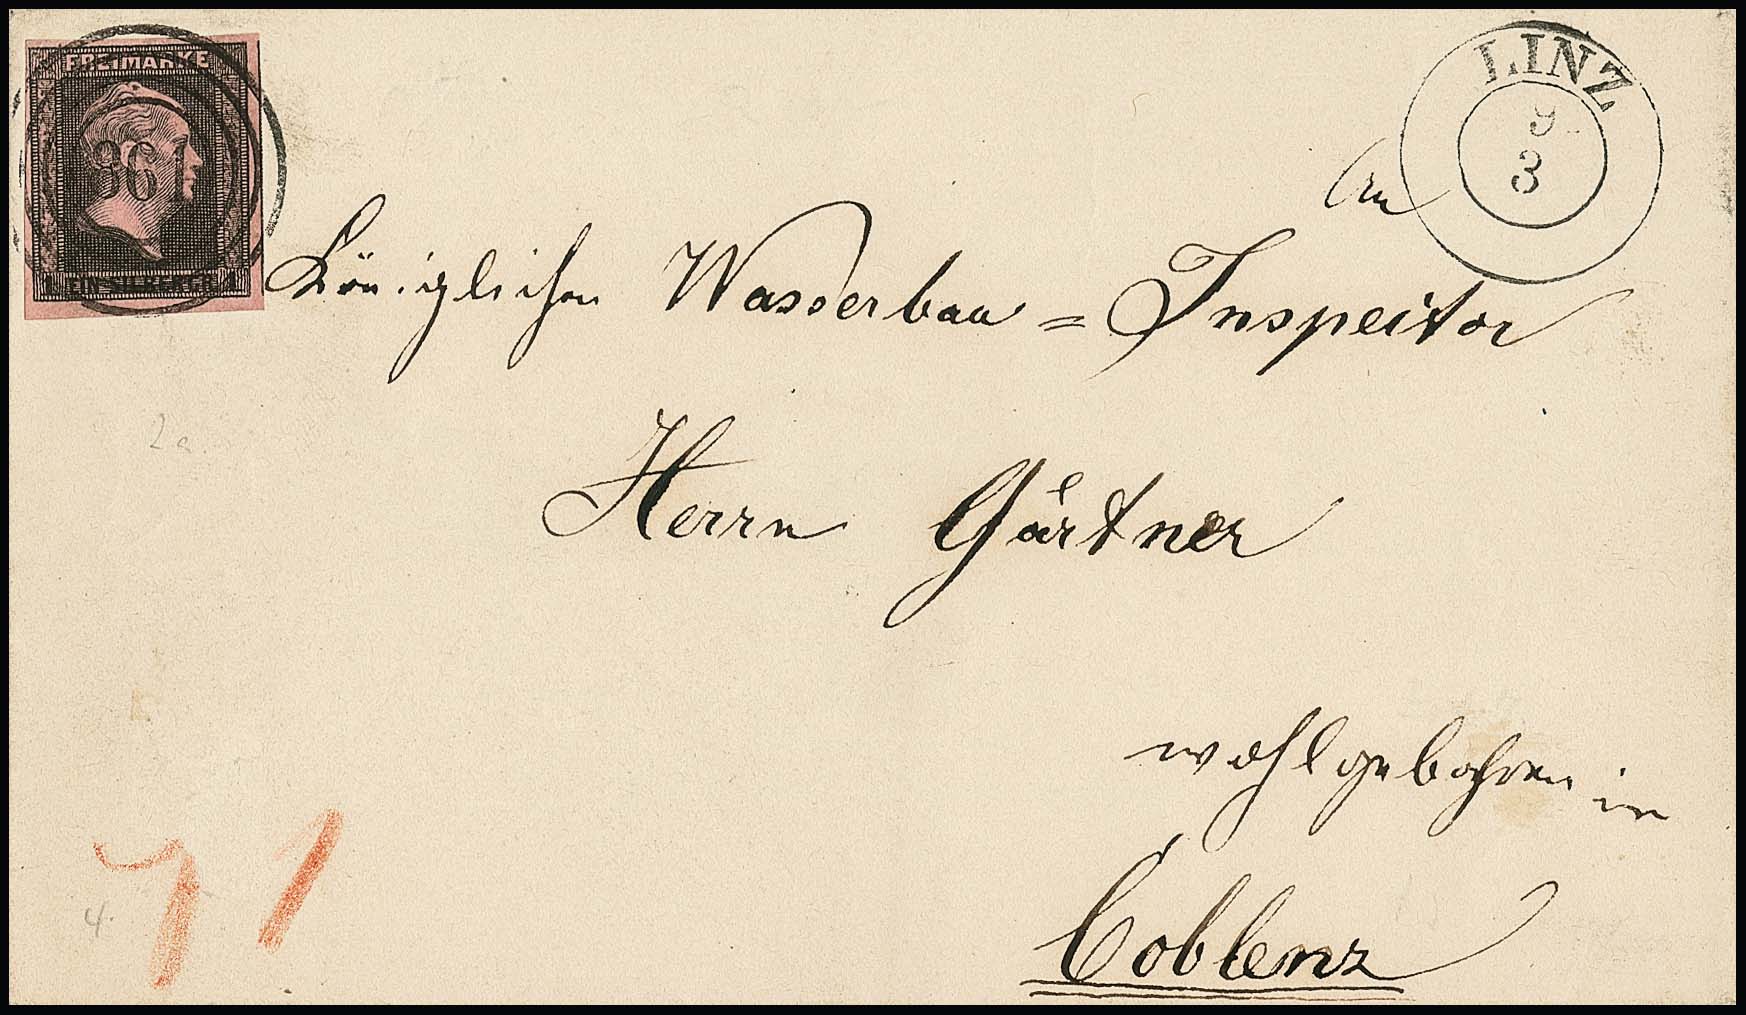 FREIMARKE
861
1 EIN SILBERGR. 1
LINZ
9
3
An
Königlichen Wasserbau = Inspector
Herrn Gärtner
wohlgebohren in
Coblenz
2a.
4.
1